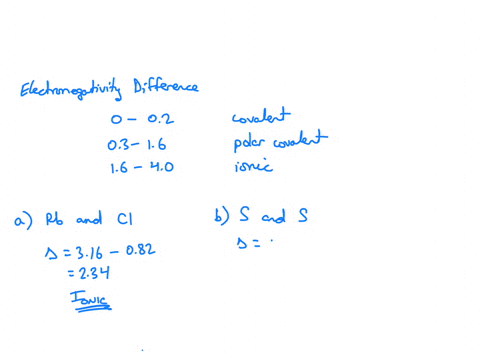 Electronegativity Difference
0 - 0.2 covalent
0.3 - 1.6 polar covalent
1.6 - 4.0 ionic
a) Rb and Cl
Δ = 3.16 - 0.82
= 2.34
Ionic
b) S and S
Δ =